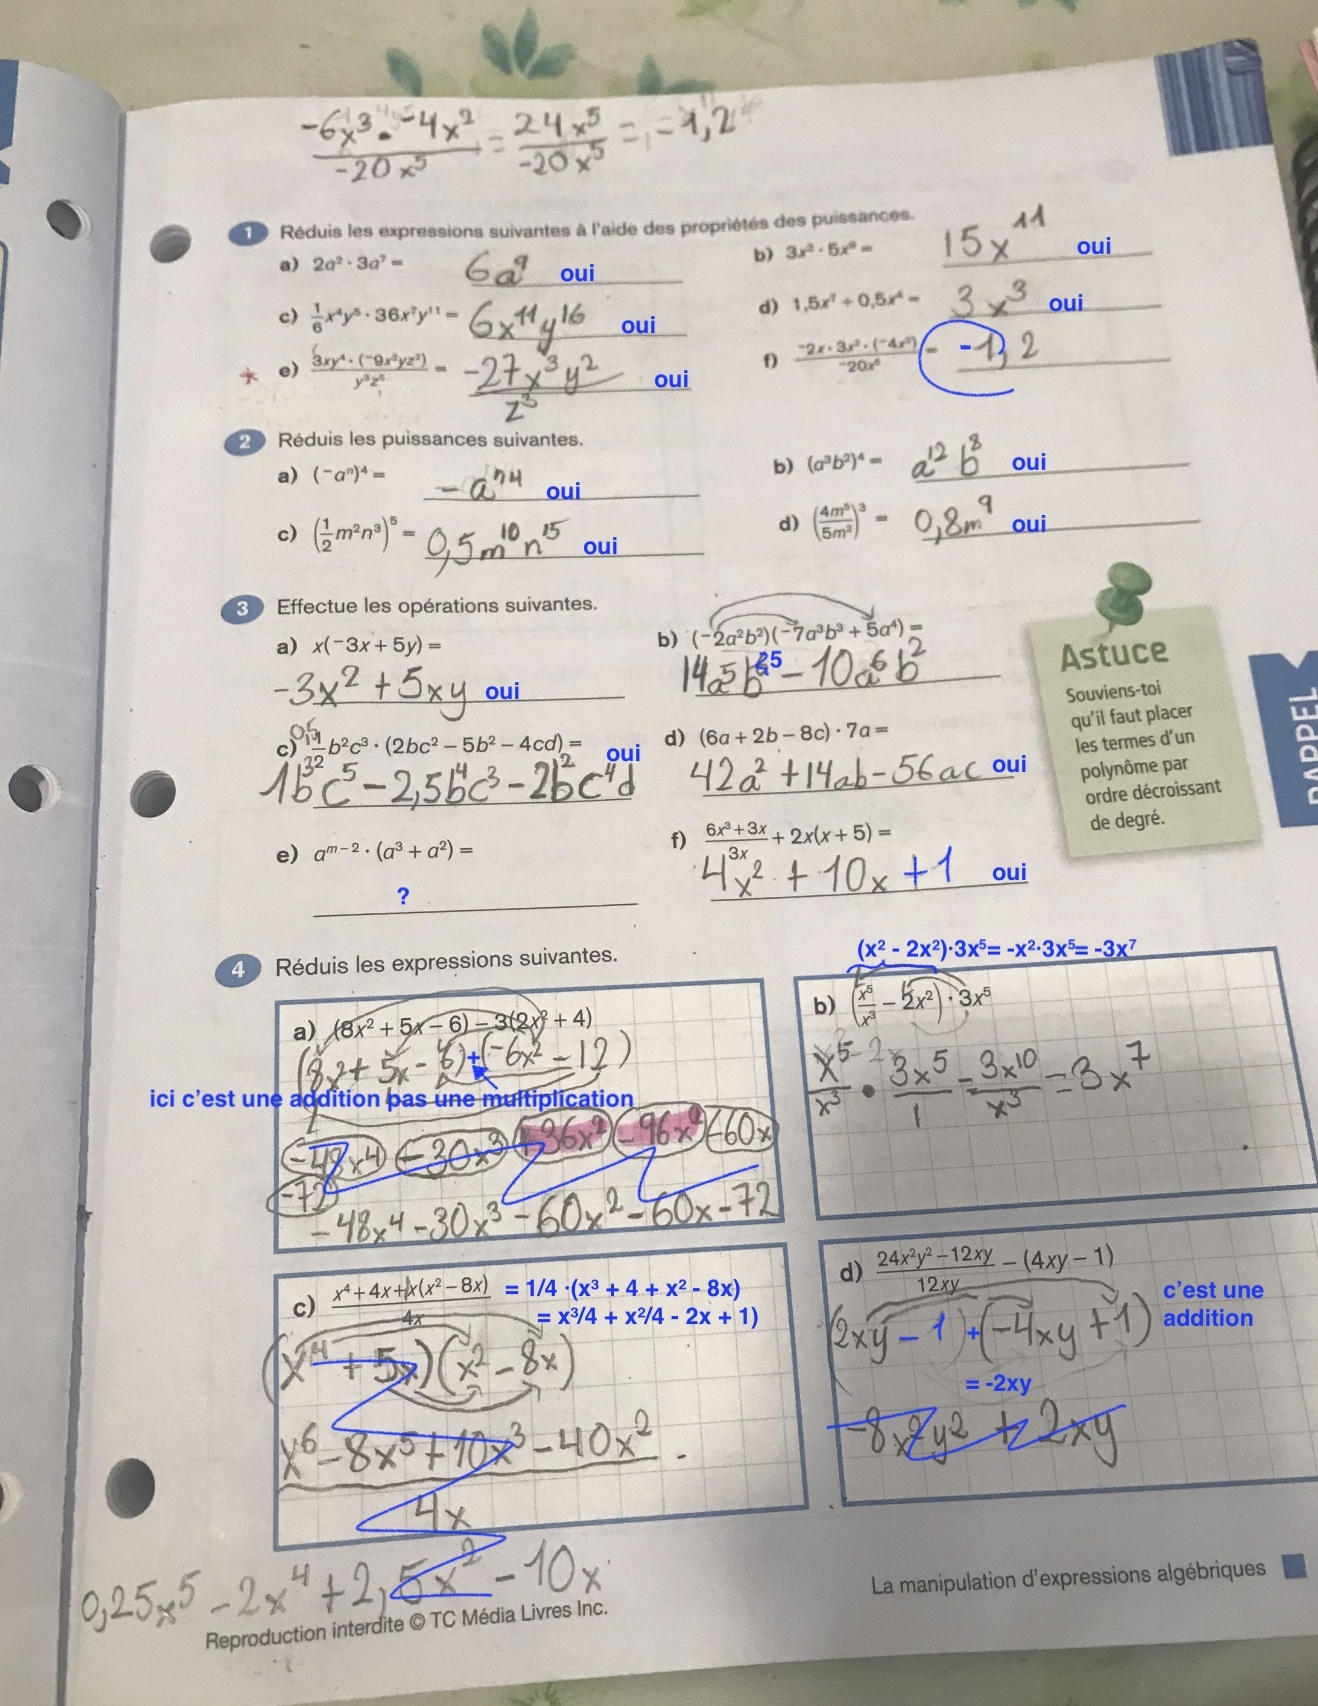 -6x³·-4x² / -20x⁵ = 24x⁵ / -20x⁵ = -1,2
1 Réduis les expressions suivantes à l'aide des propriétés des puissances.
a) 2a² · 3a⁷ = 6a⁹ oui
b) 3x² · 5x⁹ = 15x¹¹ oui
c) 1/6 x⁴y⁵ · 36x⁷y¹¹ = 6x¹¹y¹⁶ oui
d) 1,5x⁷ ÷ 0,5x⁴ = 3x³ oui
* e) 3xy⁴ · (⁻9x²yz²) / y³z⁵ = -27x³y² / z³ oui
f) ⁻2x · 3x² · (⁻4x²) / ⁻20x⁵ = -1,2
2 Réduis les puissances suivantes.
a) (⁻aⁿ)⁴ = -aⁿ⁴ oui
b) (a³b²)⁴ = a¹²b⁸ oui
c) (1/2 m²n³)⁵ = 0,5m¹⁰n¹⁵ oui
d) (4m⁵ / 5m²)³ = 0,8m⁹ oui
3 Effectue les opérations suivantes.
a) x(⁻3x + 5y) =
-3x² + 5xy oui
b) (⁻2a²b²)(⁻7a³b³ + 5a⁴) =
14a⁵b⁵ - 10a⁶b²
c) b²c³ · (2bc² – 5b² – 4cd) = oui
1b³c⁵ - 2,5b⁴c³ - 2b²c⁴d
d) (6a + 2b – 8c) · 7a =
42a² + 14ab - 56ac oui
e) aᵐ⁻² · (a³ + a²) =
?
f) 6x³ + 3x / 3x + 2x(x + 5) =
4x² + 10x + 1 oui
Astuce
Souviens-toi
qu'il faut placer
les termes d'un
polynôme par
ordre décroissant
de degré.
RAPPEL
4 Réduis les expressions suivantes.
a) (8x² + 5x – 6) – 3(2x² + 4)
(8x² + 5x - 6)+(-6x² - 12)
ici c'est une addition pas une multiplication
-48x⁴ - 30x³ +36x² -96x² -60x
-72
-48x⁴ - 30x³ - 60x² - 60x - 72
(x² - 2x²)·3x⁵= -x²·3x⁵= -3x⁷
b) (x⁵/x³ – 2x²) · 3x⁵
x⁵ - 2 / x³ · 3x⁵ / 1 = 3x¹⁰ / x³ = 3x⁷
c) x⁴ + 4x + x(x² – 8x) / 4x = 1/4 ·(x³ + 4 + x² - 8x)
= x³/4 + x²/4 - 2x + 1)
(x⁴ + 5x)(x² - 8x)
x⁶ - 8x⁵ + 10x³ - 40x²
4x
0,25x⁵ - 2x⁴ + 2,5x² - 10x
d) 24x²y² – 12xy / 12xy – (4xy – 1)
c'est une
addition
(2xy - 1)+(-4xy + 1)
= -2xy
-8x²y² + 2xy
La manipulation d'expressions algébriques
Reproduction interdite © TC Média Livres Inc.